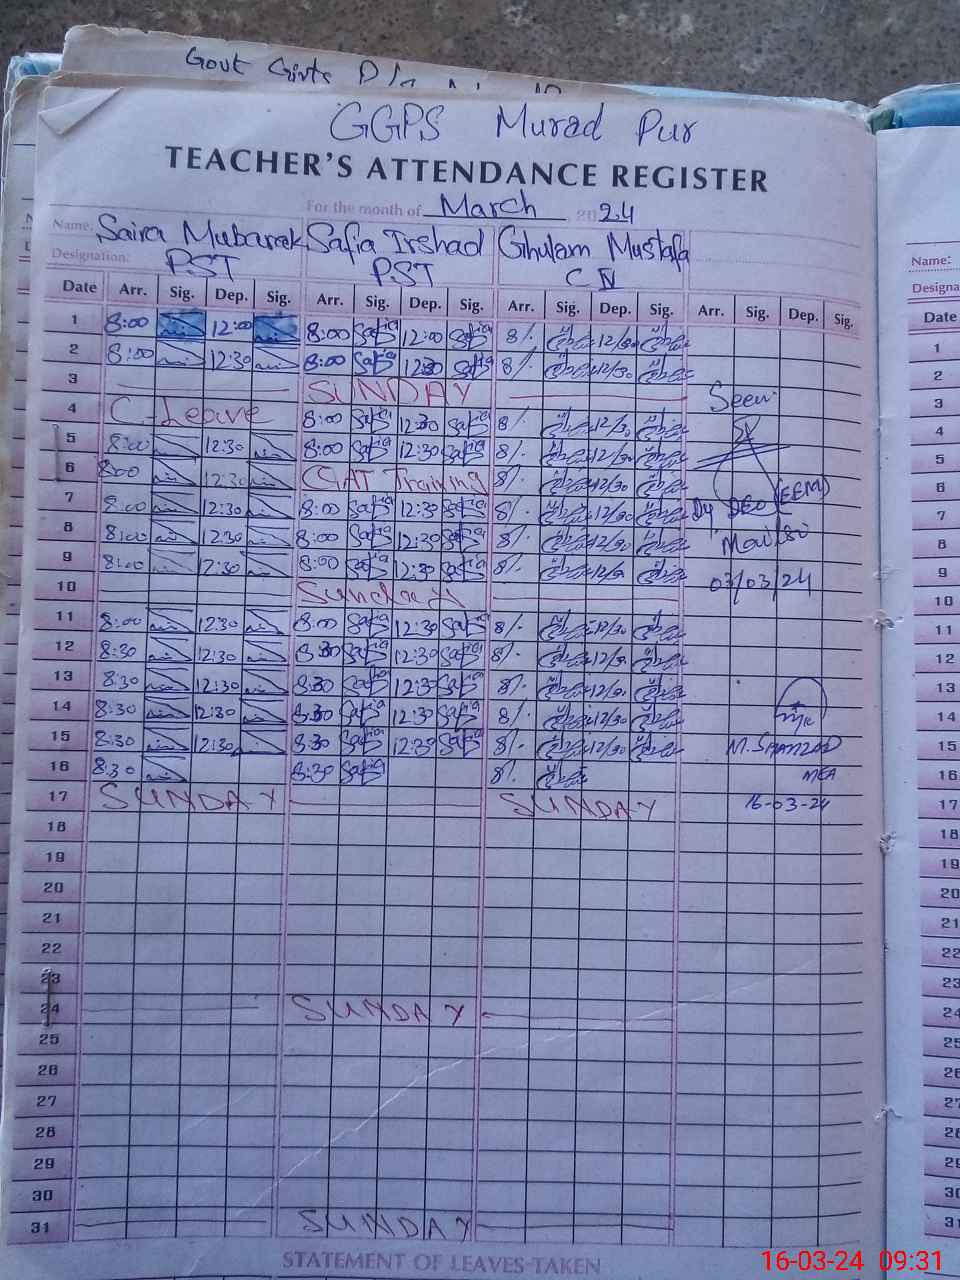 Govt Girls
GGPS Murad Pur
TEACHER'S ATTENDANCE REGISTER
For the month of March, 2024
Name: Saira Mubarak Safia Irshad Ghulam Mustafa Name:
Designation: PST PST C IV Designa
Date Arr. Sig. Dep. Sig. Arr. Sig. Dep. Sig. Arr. Sig. Dep. Sig. Arr. Sig. Dep. Sig. Date
1 8:00 12:00 8:00 Safia 12:00 Safia 8/. 12/30 1
2 8:00 12:30 8:00 Safia 12:30 Safia 8/. 12/30 2
3 SUNDAY Seen 3
4 C-Leave 8:00 Safia 12:30 Safia 8/. 12/30 4
5 8:00 12:30 8:00 Safia 12:30 Safia 8/. 12/30 5
6 8:00 12:30 GAT Training 8/. 12/30 6
7 8:00 12:30 8:00 Safia 12:30 Safia 8/. 12/30 Dy DEO (EEM) 7
8 8:00 12:30 8:00 Safia 12:30 Safia 8/. 12/30 Mailsi 8
9 8:00 12:30 8:00 Safia 12:30 Safia 8/. 12/30 03/03/24 9
10 Sunday 10
11 8:00 12:30 8:00 Safia 12:30 Safia 8/. 12/30 11
12 8:30 12:30 8:30 Safia 12:30 Safia 8/. 12/30 12
13 8:30 12:30 8:30 Safia 12:30 Safia 8/. 12/30 13
14 8:30 12:30 8:30 Safia 12:30 Safia 8/. 12/30 14
15 8:30 12:30 8:30 Safia 12:30 Safia 8/. 12/30 M. SHAHZAD 15
16 8:30 8:30 Safia 8/. MEA 16
17 SUNDAY SUNDAY 16-03-24 17
18 18
19 19
20 20
21 21
22 22
23 23
24 SUNDAY 24
25 25
26 26
27 27
28 28
29 29
30 30
31 SUNDAY 31
STATEMENT OF LEAVES-TAKEN
16-03-24 09:31